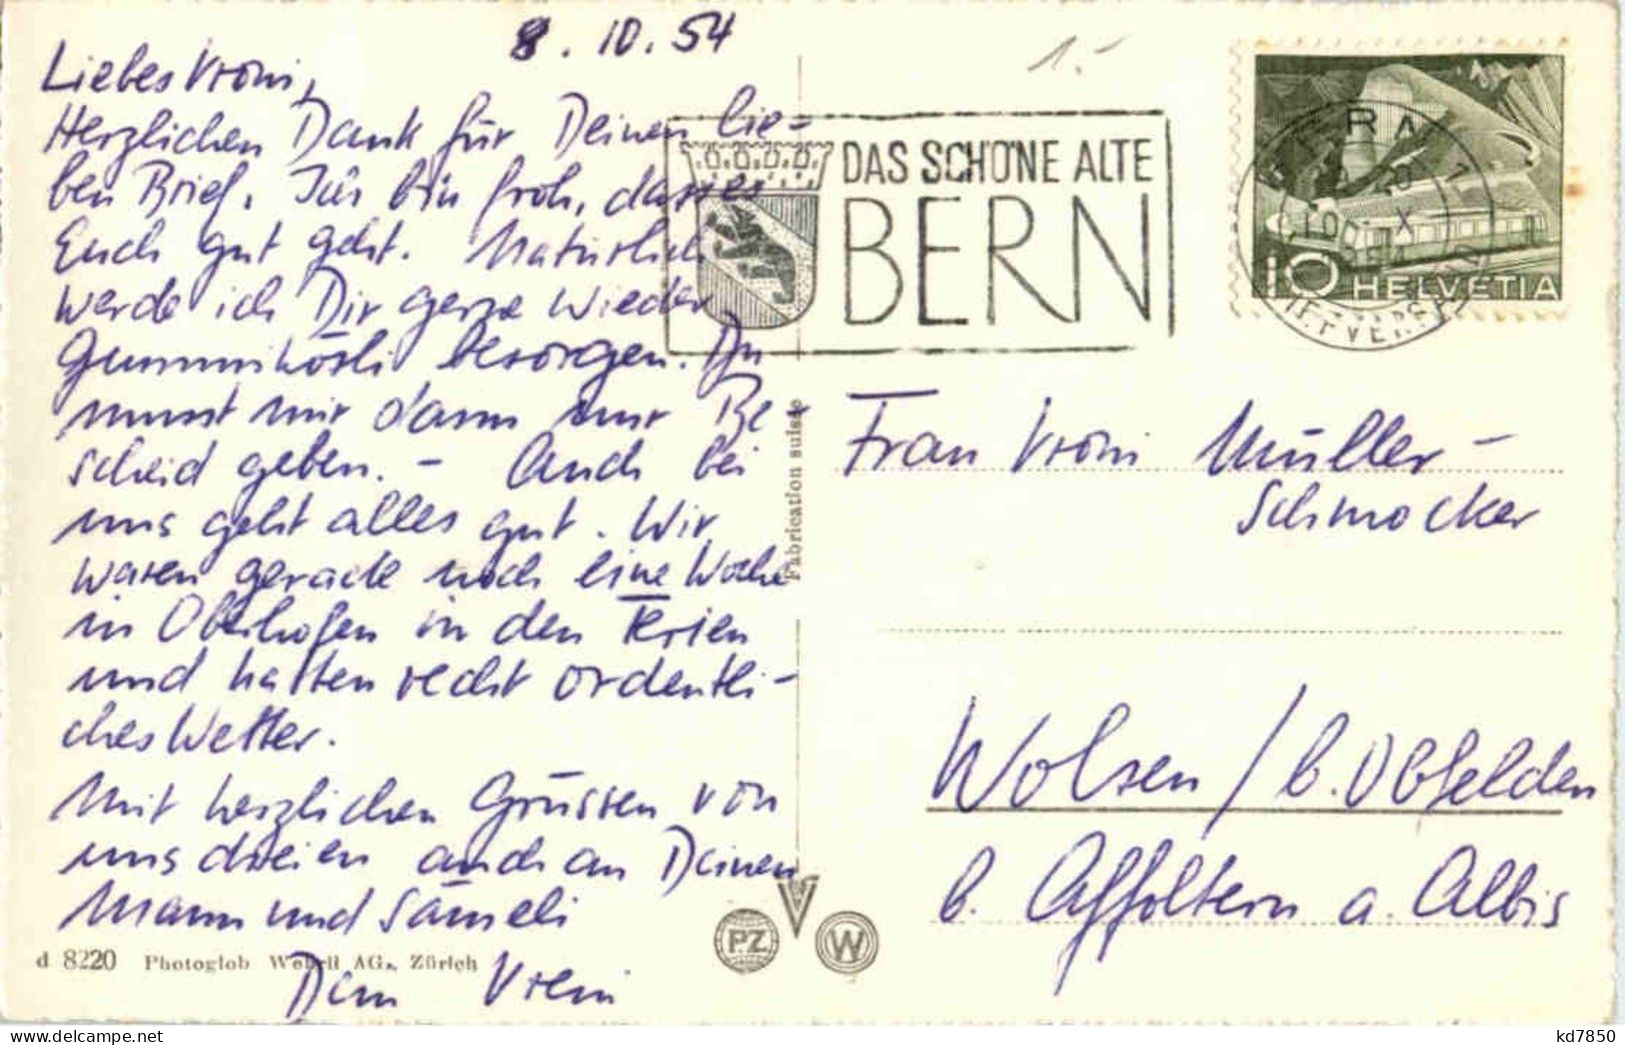 8. 10. 54
1.-
Liebes Vroni,
Herzlichen Dank für Deinen lie-
ben Brief. Ich bin froh, dass es
Euch gut geht. Natürlich
werde ich Dir gerne wieder
besorgen. Du
musst mir dann nur Be-
scheid geben. - Auch bei
uns geht alles gut. Wir
waren gerade noch eine Woche
in Oberhofen in den Ferien
und hatten recht ordentli-
ches Wetter.
Mit herzlichen Grüssen von
uns dreien auch an Deinen
Mann und Sämeli
Dein Vreni
DAS SCHÖNE ALTE
BERN
10 HELVETIA
Fabrication suisse
Frau Vroni Müller-
Schmocker
Wolsen / b. Obfelden
b. Affoltern a. Albis
PZ
W
d 8220 Photoglob Wehrli AG., Zürich
delcampe.net
kd7850